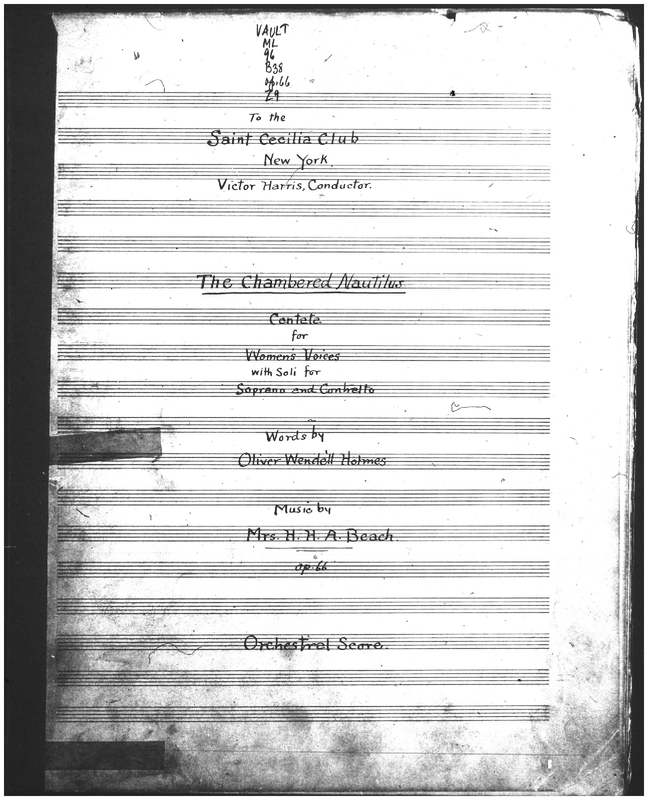 VAULT
ML
96
B38
op.66
Z9
To the
Saint Cecilia Club
New York.
Victor Harris, Conductor.
The Chambered Nautilus
Cantata
for
Women's Voices
with Soli for
Soprano and Contralto
Words by
Oliver Wendell Holmes
Music by
Mrs. H. H. A. Beach.
op. 66
Orchestral Score.